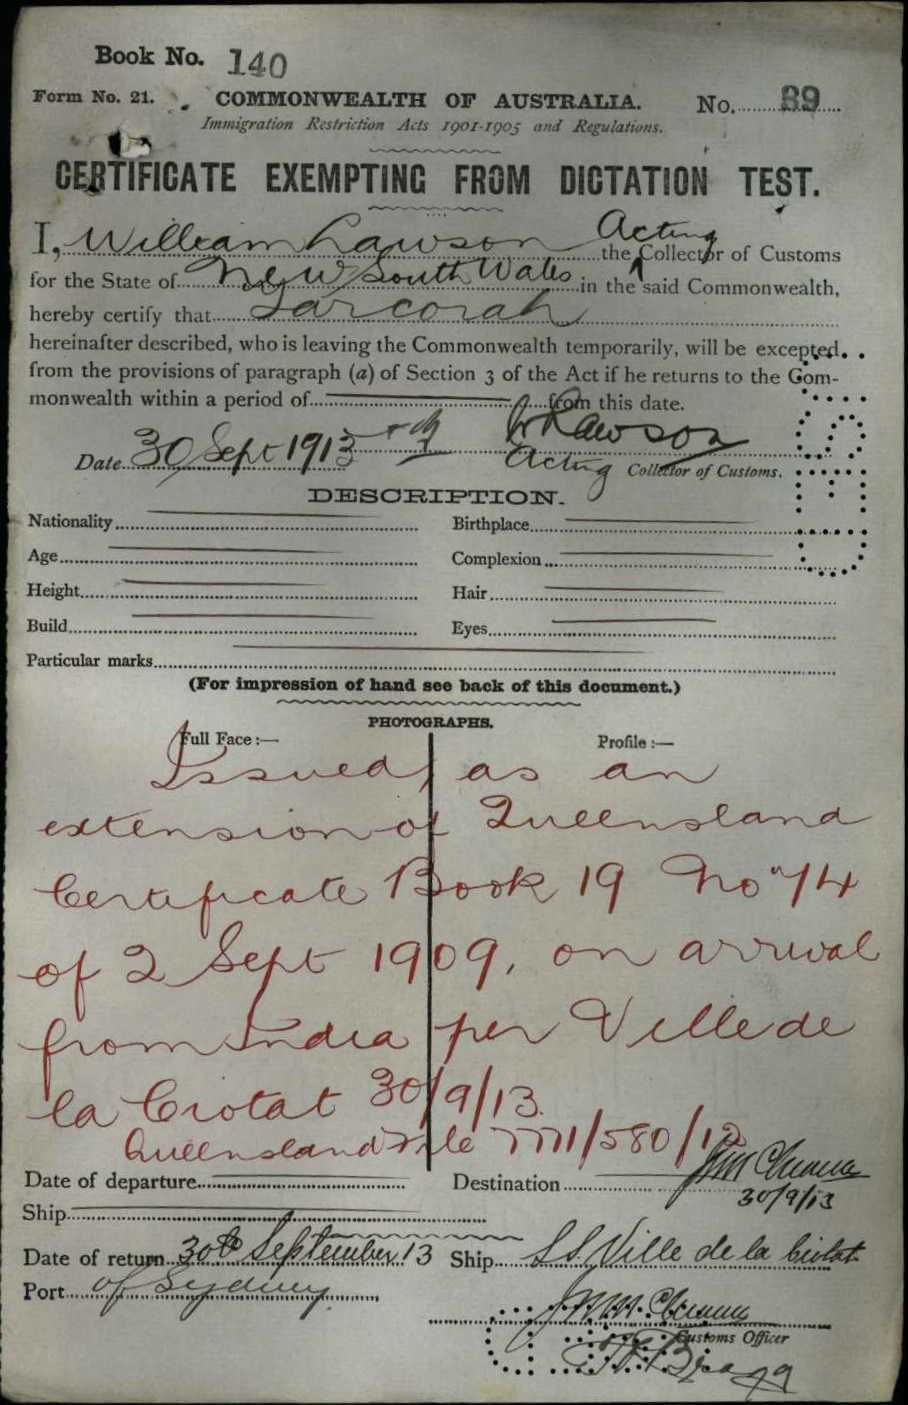 Book No. 140
Form No. 21. COMMONWEALTH OF AUSTRALIA. No. 89
Immigration Restriction Acts 1901-1905 and Regulations.
CERTIFICATE EXEMPTING FROM DICTATION TEST.
I, William Lawson the Acting Collector of Customs
for the State of New South Wales in the said Commonwealth,
hereby certify that Larcorah
hereinafter described, who is leaving the Commonwealth temporarily, will be excepted
from the provisions of paragraph (a) of Section 3 of the Act if he returns to the Com-
monwealth within a period of from this date.
W Lawson
Date 30 Sept 1913 Acting Collector of Customs.
DESCRIPTION.
Nationality Birthplace
Age Complexion
Height Hair
Build Eyes
Particular marks
(For impression of hand see back of this document.)
PHOTOGRAPHS.
Full Face :— Profile :—
Issued as an
extension of Queensland
Certificate Book 19 No 74
of 2 Sept 1909, on arrival
from India per Ville de
la Ciotat 30/9/13.
Queensland File
Date of departure Destination
30/9/13
Ship
Date of return 30th September 13 Ship S.S. Ville de la Ciotat
Port of Sydney
Customs Officer